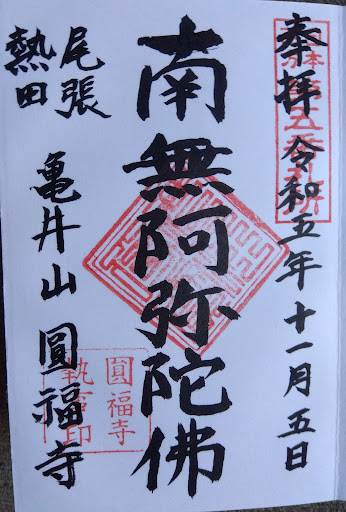 奉拝 令和五年十一月五日
南無阿弥陀佛
尾張
熱田
亀井山 圓福寺
圓福寺
執事印